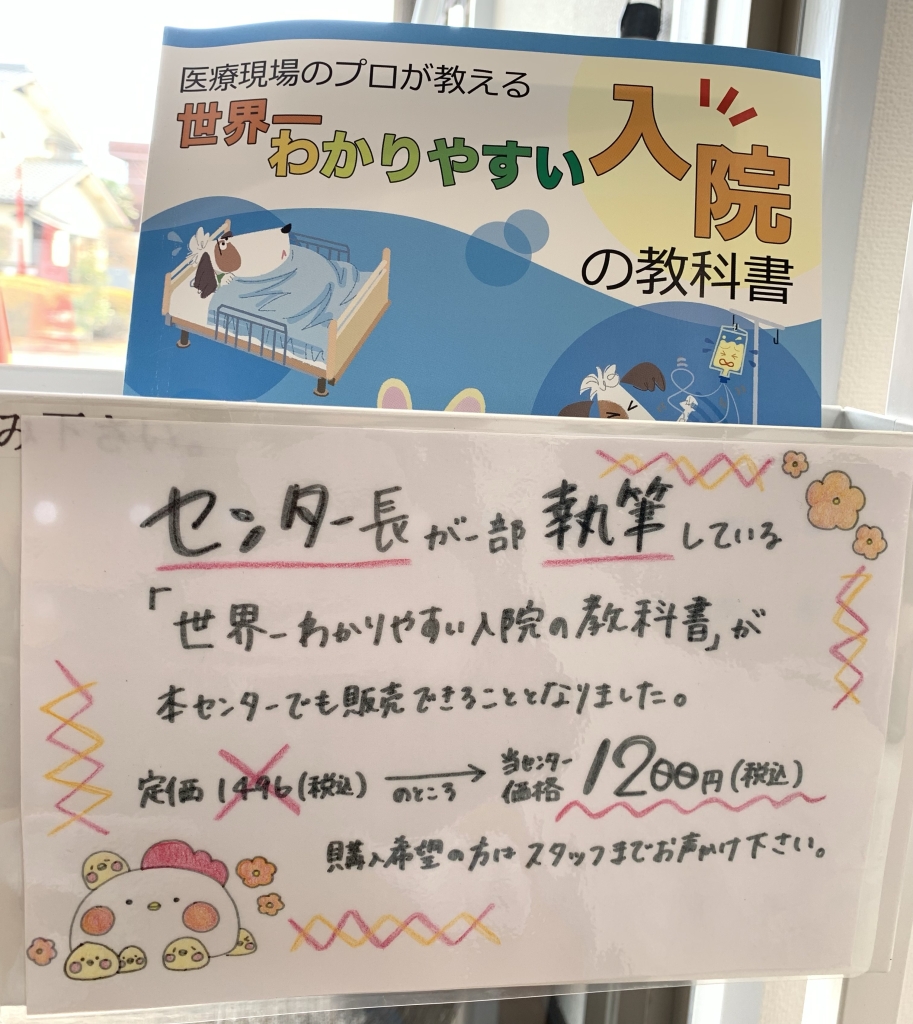 医療現場のプロが教える
世界一
わかりやすい
入院
の教科書
センター長が一部執筆している
「世界一わかりやすい入院の教科書」が
本センターでも販売できることとなりました。
定価1496(税込)のところ→当センター価格1200円(税込)
購入希望の方はスタッフまでお声かけ下さい。